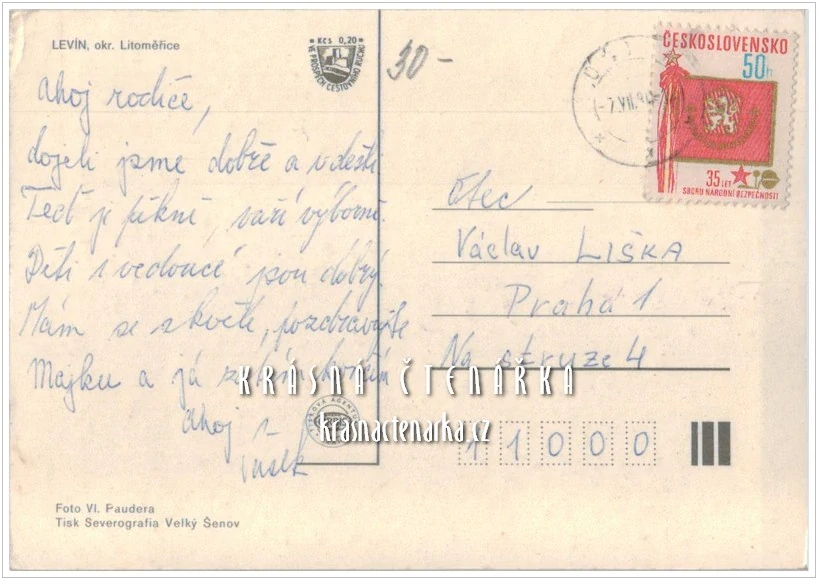 LEVÍN, okr. Litoměřice
Kčs 0,20
VE PROSPĚCH CESTOVNÍHO RUCHU
30-
ČESKOSLOVENSKO
50h
35 LET
SBORU NÁRODNÍ BEZPEČNOSTI
-7.VII.
ahoj rodiče,
dojeli jsme dobře a v dešti
Teď je pěkně, vaří výborně.
Děti i vedoucí jsou dobrý.
Mám se skvěle, pozdravujte
Majku a já
ahoj
čtec
Václav LIŠKA
Praha 1
Na struze 4
11000
KRÁSNÁ ČTENÁŘKA
krasnactenarka.cz
Foto Vl. Paudera
Tisk Severografia Velký Šenov